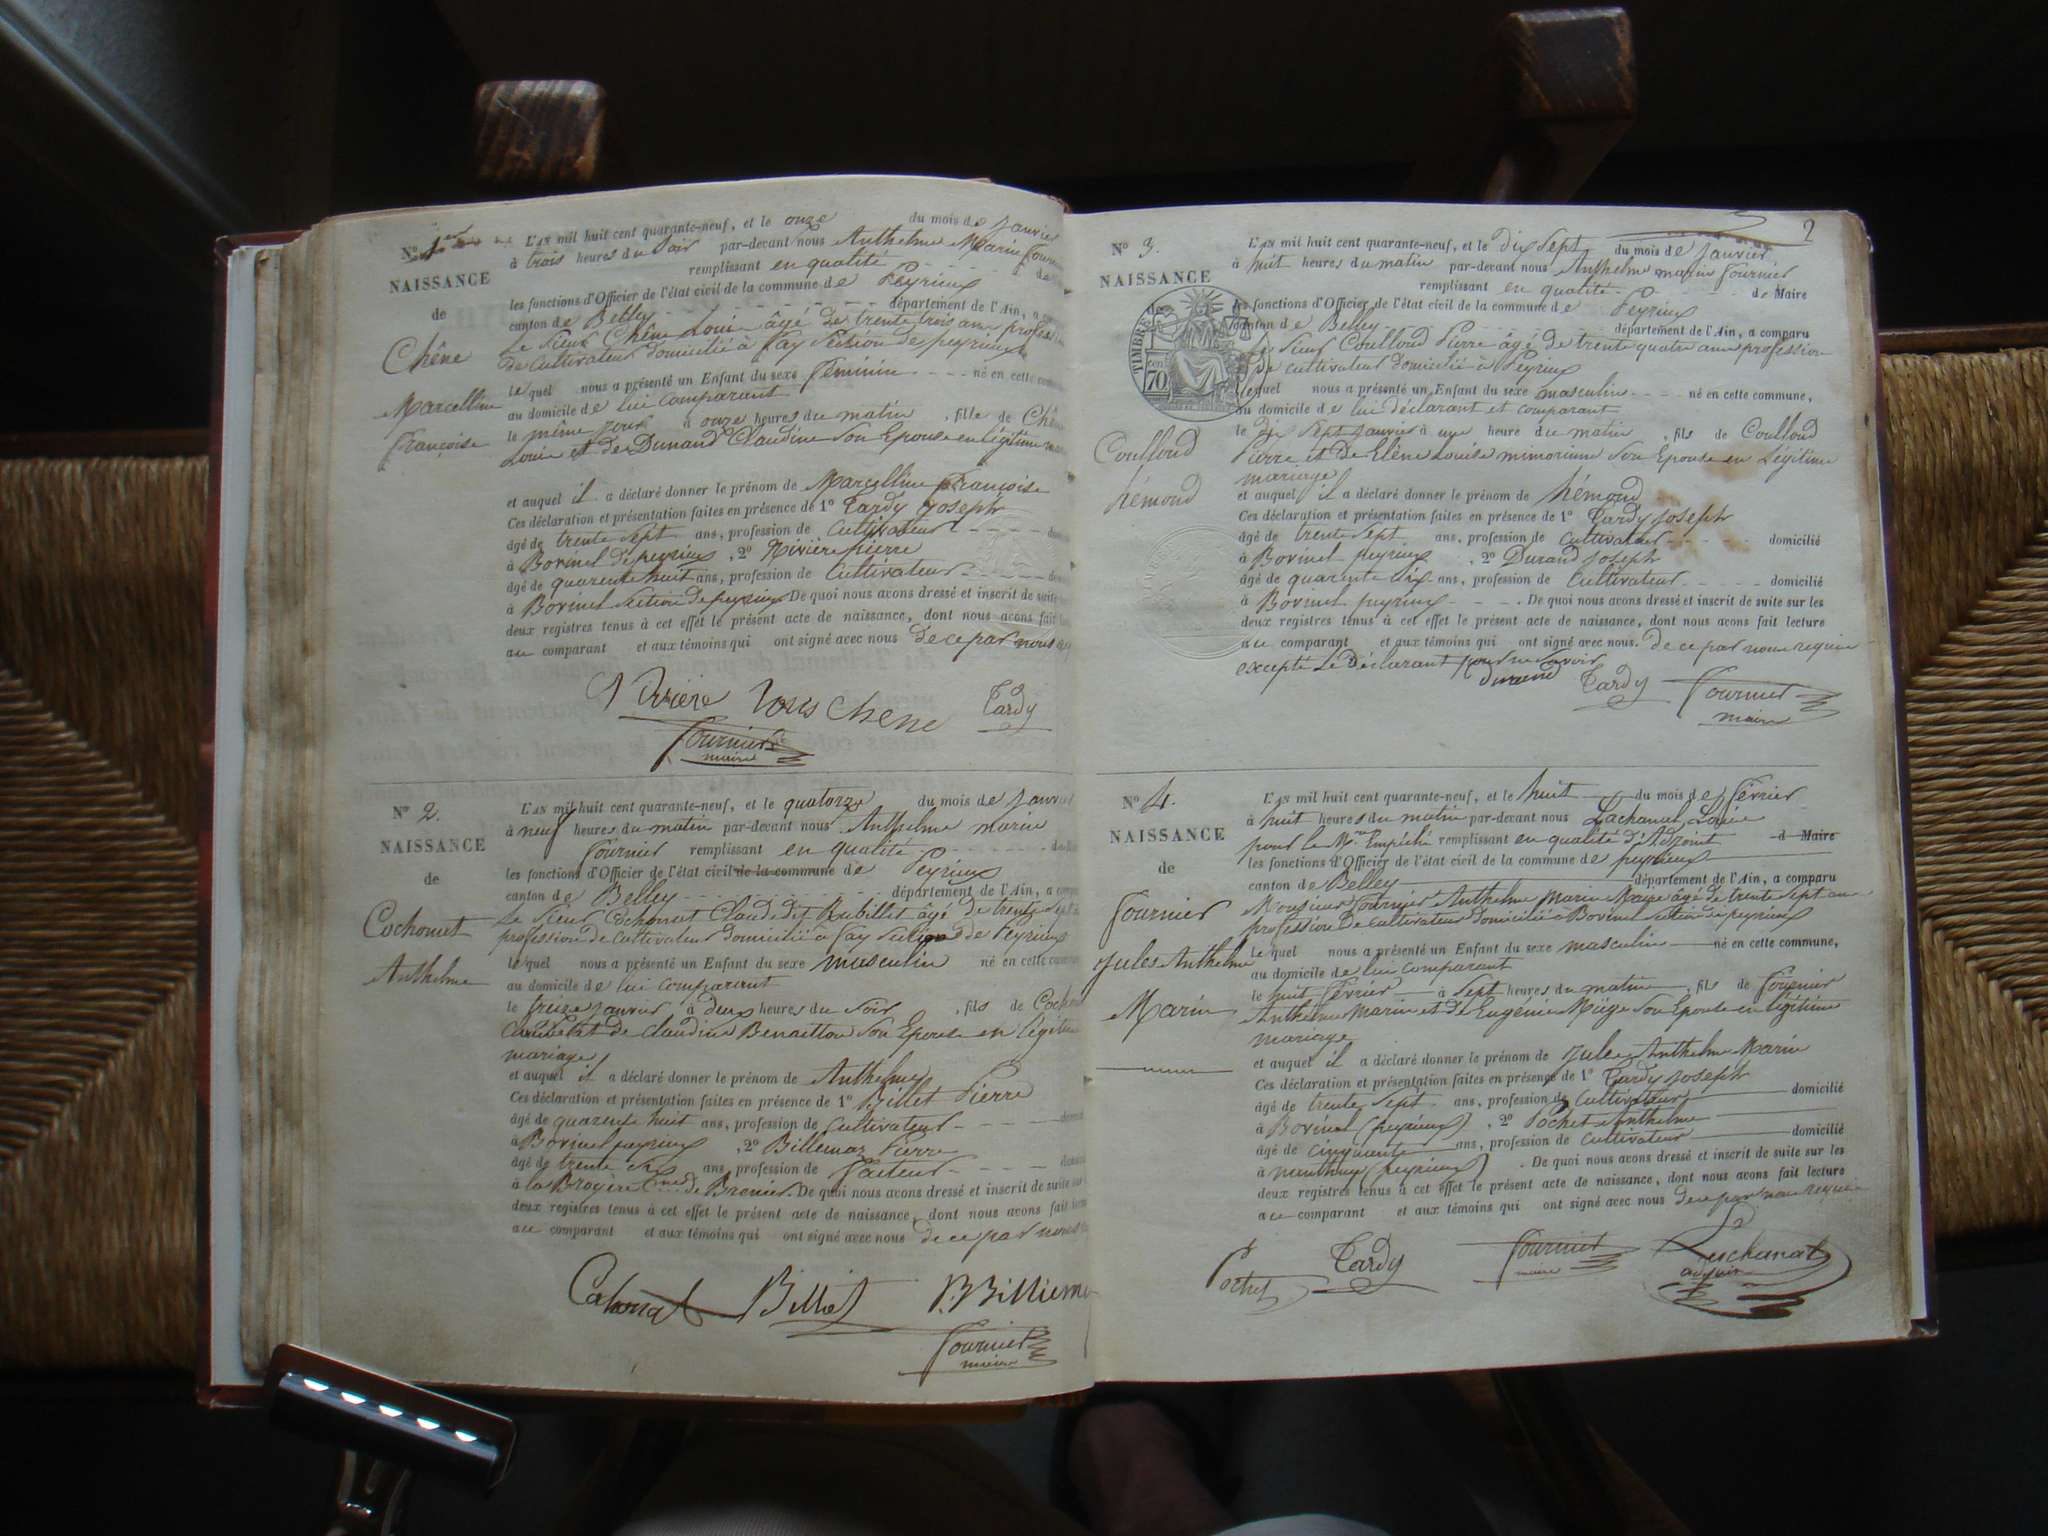 N° 1er
NAISSANCE
de
Chêne
Marcelline
Françoise
L'AN mil huit cent quarante-neuf, et le onze du mois de Janvier
à trois heures du Soir par-devant nous Anthelme Marin
remplissant en qualité
les fonctions d'Officier de l'état civil de la commune de Peyrieux
canton de Belley département de l'Ain, a
Le Sieur Chêne Louis âgé de trente trois ans
de Cultivateur domicilié à Fay Section de peyrieux
le quel nous a présenté un Enfant du sexe Féminin né en cette
au domicile de lui comparant
le même jour à onze heures du matin, fille de
Louis et de Dunand Claudine Son Epouse en légitime
et auquel il a déclaré donner le prénom de Marcelline Françoise
Ces déclaration et présentation faites en présence de 1° Tardy Joseph
âgé de trente Sept ans, profession de Cultivateur
à Borinel de peyrieux, 2° Rivière pierre
âgé de quarente huit ans, profession de Cultivateur
à Borinel Section de peyrieux De quoi nous avons dressé et inscrit de suite
deux registres tenus à cet effet le présent acte de naissance, dont nous avons fait
au comparant et aux témoins qui ont signé avec nous de ce par nous
Rivière Louis Chene Tardy
Fournier
maire
N° 2.
NAISSANCE
de
Cochonat
Anthelme
L'AN mil huit cent quarante-neuf, et le quatorze du mois de
à neuf heures du matin par-devant nous Anthelme marin
Fournier remplissant en qualité
les fonctions d'Officier de l'état civil de la commune de Peyrieux
canton de Belley département de l'Ain, a
Le Sieur Cochonat Claude dit Rubillet âgé de trente Sept
profession de Cultivateur domicilié à Fay Section de Peyrieux
le quel nous a présenté un Enfant du sexe masculin né en cette
au domicile de lui comparant
le treize Janvier à deux heures du Soir, fils de
Claude et de Claudine Son Epouse en
mariage
et auquel il a déclaré donner le prénom de Anthelme
Ces déclaration et présentation faites en présence de 1° Billet Pierre
âgé de quarente huit ans, profession de Cultivateur
à Borinel peyrieux, 2° Billemaz Pierre
âgé de trente ans profession de Facteur
à la Broyère de Brenier. De quoi nous avons dressé et inscrit de suite sur
deux registres tenus à cet effet le présent acte de naissance, dont nous avons fait
au comparant et aux témoins qui ont signé avec nous de ce par nous
Billiet
Fournier
maire
2
N° 3.
NAISSANCE
TIMBRE
70
Coulloud
hémond
L'AN mil huit cent quarante-neuf, et le dix Sept du mois de Janvier
à huit heures du matin par-devant nous Anthelme marin Fournier
remplissant en qualité de Maire
les fonctions d'Officier de l'état civil de la commune de Peyrieux
canton de Belley département de l'Ain, a comparu
Le Sieur Coulloud Pierre âgé de trente quatre ans profession
de cultivateur domicilié à Peyrieux
lequel nous a présenté un Enfant du sexe masculin né en cette commune,
au domicile de lui déclarant et comparant
le dix Sept Janvier à une heure du matin, fils de Coulloud
Pierre et de Elène Louise Son Epouse en Légitime
mariage
et auquel il a déclaré donner le prénom de hémond
Ces déclaration et présentation faites en présence de 1° Tardy Joseph
âgé de trente Sept ans, profession de Cultivateur domicilié
à Borinel peyrieux, 2° Durand Joseph
âgé de quarente Six ans, profession de Cultivateur domicilié
à Borinel peyrieux. De quoi nous avons dressé et inscrit de suite sur les
deux registres tenus à cet effet le présent acte de naissance, dont nous avons fait lecture
au comparant et aux témoins qui ont signé avec nous. de ce par nous requis
excepté Le Déclarant pour ne Savoir
durand Tardy Fournier
maire
N° 4.
NAISSANCE
de
Fournier
Jules Anthelme
Marin
L'AN mil huit cent quarante-neuf, et le huit du mois de Février
à huit heures du matin par-devant nous
pour le Mre Empêché remplissant en qualité d'Adjoint d Maire
les fonctions d'Officier de l'état civil de la commune de peyrieux
canton de Belley département de l'Ain, a comparu
Monsieur Fournier Anthelme Marin Maire âgé de trente Sept ans
profession de Cultivateur domicilié à Borinel Section de peyrieux
le quel nous a présenté un Enfant du sexe masculin né en cette commune,
au domicile de lui comparant
le huit Février à Sept heures du matin, fils de Fournier
Anthelme Marin et de Eugénie Miège Son Epouse en légitime
mariage
et auquel il a déclaré donner le prénom de Jules Anthelme Marin
Ces déclaration et présentation faites en présence de 1° Tardy Joseph
âgé de trente Sept ans, profession de Cultivateur domicilié
à Borinel (peyrieux), 2° Pochet Anthelme
âgé de cinquante ans, profession de Cultivateur domicilié
à (peyrieux). De quoi nous avons dressé et inscrit de suite sur les
deux registres tenus à cet effet le présent acte de naissance, dont nous avons fait lecture
au comparant et aux témoins qui ont signé avec nous de ce par nous requis
Pochet Tardy Fournier Luchanat
maire adjoint